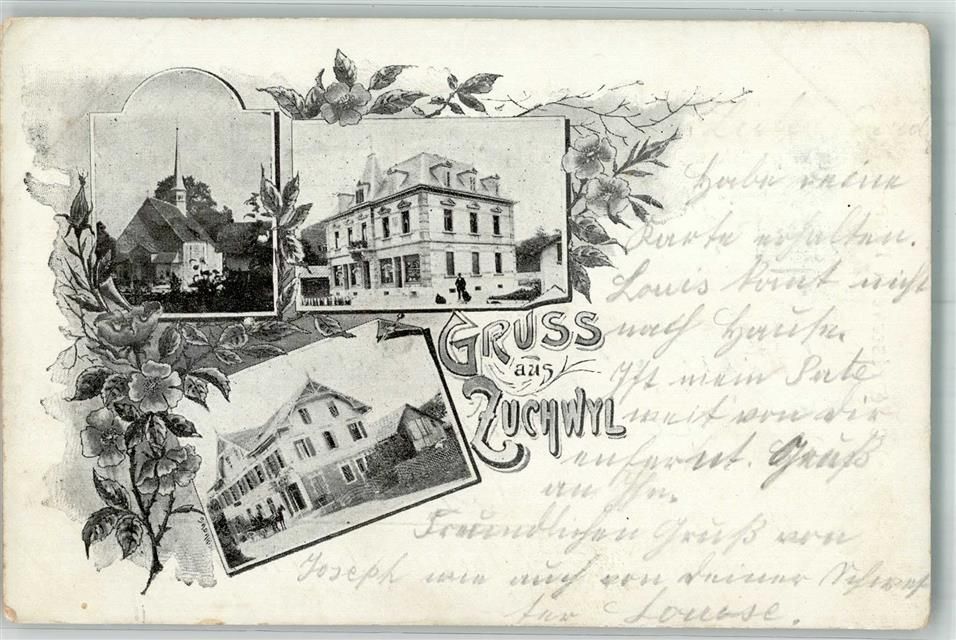 GRUSS
aus
ZUCHWYL
Habe deine
Karte erhalten.
Louis komt nicht
nach Hause.
Ist mein Pate
weit von dir
enfernt. Gruß
an Ihn.
Freundlichen Gruß von
Joseph wie auch von deiner Schwes
ter Louise.